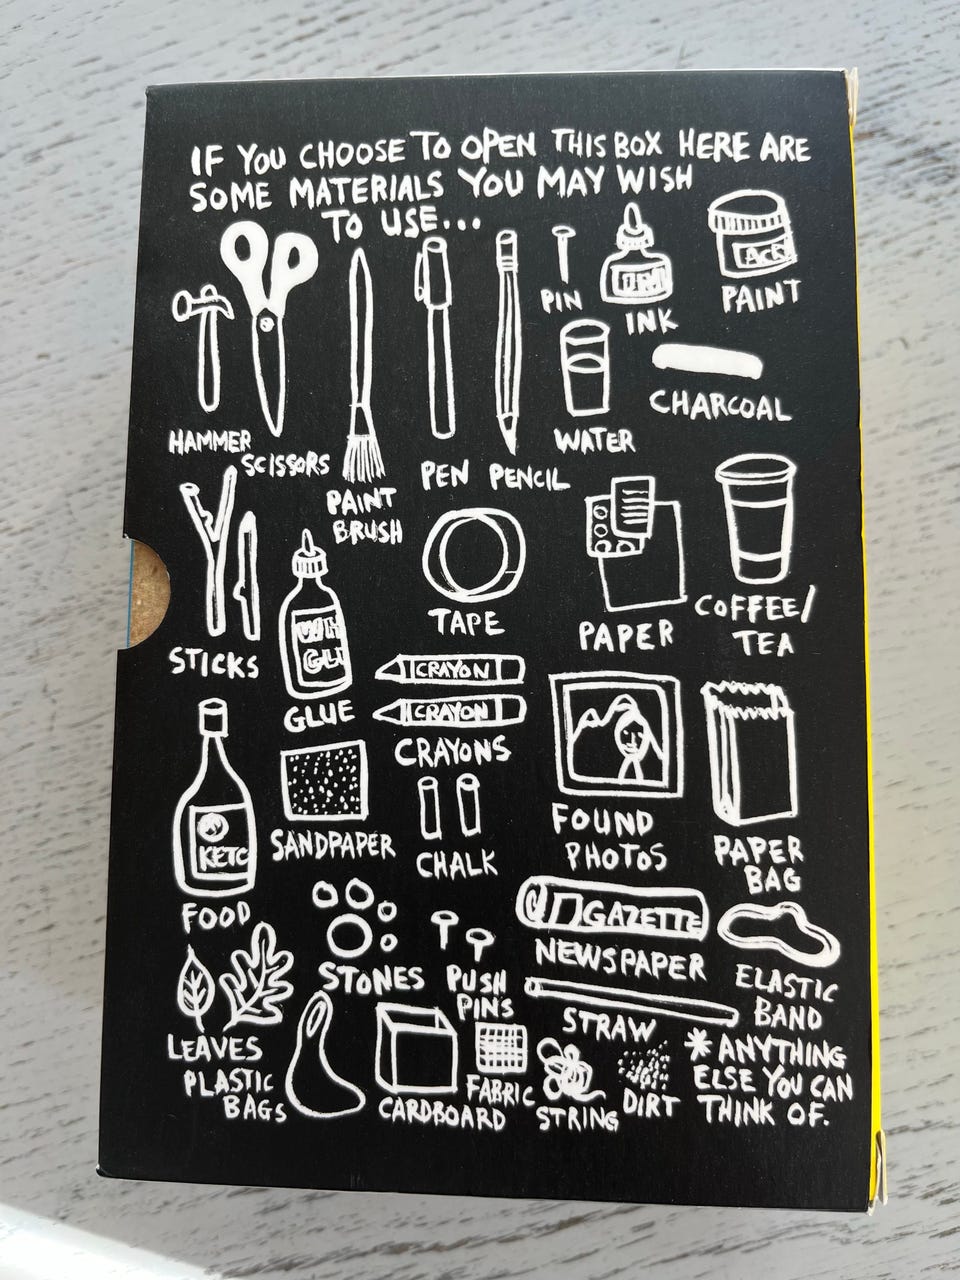 IF YOU CHOOSE TO OPEN THIS BOX HERE ARE
SOME MATERIALS YOU MAY WISH
TO USE...
HAMMER
SCISSORS
PAINT
BRUSH
PEN
PENCIL
PIN
INK
PAINT
WATER
CHARCOAL
STICKS
GLUE
TAPE
PAPER
COFFEE/
TEA
CRAYON
CRAYON
CRAYONS
KETC
FOOD
SANDPAPER
CHALK
FOUND
PHOTOS
PAPER
BAG
STONES
PUSH
PINS
GAZETTE
NEWSPAPER
ELASTIC
BAND
LEAVES
PLASTIC
BAGS
CARDBOARD
FABRIC
STRAW
STRING
DIRT
* ANYTHING
ELSE YOU CAN
THINK OF.